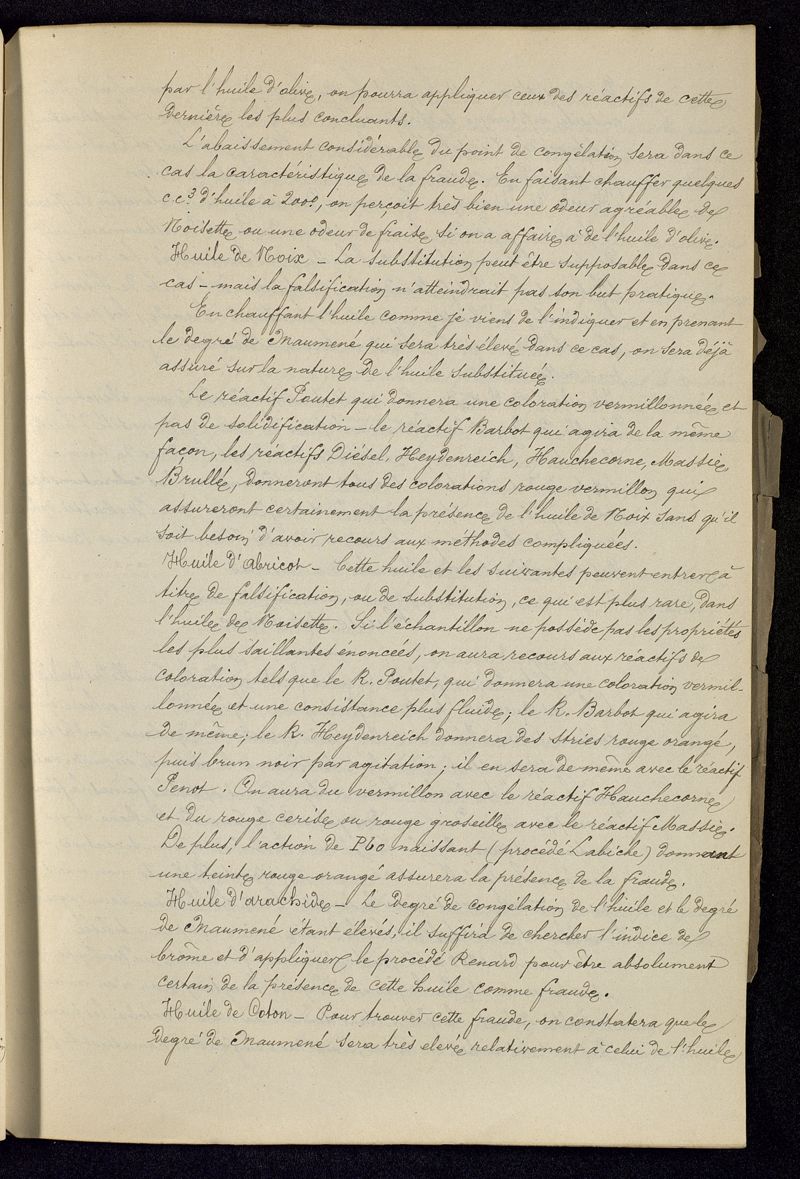 par l'huile d'olive, on pourra appliquer ceux des réactifs de cette
dernière les plus concluants.
L'abaissement considérable du point de congélation sera dans ce
cas la caractéristique de la fraude. En faisant chauffer quelques
cc³ d'huile à 200°, on perçoit très bien une odeur agréable de
Noisette ou une odeur de fraise si on a affaire à de l'huile d'olive.
Huile de Noix – La substitution peut être supposable dans ce
cas – mais la falsification n'atteindrait pas son but pratique.
En chauffant l'huile comme je viens de l'indiquer et en prenant
le degré de Maumené qui sera très élevé dans ce cas, on sera déjà
assuré sur la nature de l'huile substituée.
Le réactif Poutet qui donnera une coloration vermillonnée et
pas de solidification – le réactif Barbot qui agira de la même
façon, les réactifs Diésel, Heydenreich, Hauchecorne, Massie
Brullé, donneront tous des colorations rouge vermillon qui
assureront certainement la présence de l'huile de Noix sans qu'il
soit besoin d'avoir recours aux méthodes compliquées.
Huile d'abricot – Cette huile et les suivantes peuvent entrer à
titre de falsification, ou de substitution, ce qui est plus rare, dans
l'huile de Noisette. Si l'échantillon ne possède pas les propriétés
les plus saillantes enoncées, on aura recours aux réactifs de
coloration tels que le R. Poutet, qui donnera une coloration vermil-
lonnée et une consistance plus fluide; le R. Barbot qui agira
de même; le R. Heydenreich donnera des stries rouge orangé,
puis brun noir par agitation; il en sera de même avec le réactif
Penot. On aura du vermillon avec le réactif Hauchecorne
et du rouge cerise ou rouge groseille avec le réactif Massie.
De plus, l'action de Pbo naissant (procédé Labiche) donnant
une teinte rouge orangé assurera la présence de la fraude.
Huile d'arachide – Le degré de congélation de l'huile et le degré
de Maumené étant élevés, il suffira de chercher l'indice de
brôme et d'appliquer le procédé Renard pour être absolument
certain de la présence de cette huile comme fraude.
Huile de Coton – Pour trouver cette fraude, on constatera que le
degré de Maumené sera très elevé relativement à celui de l'huile